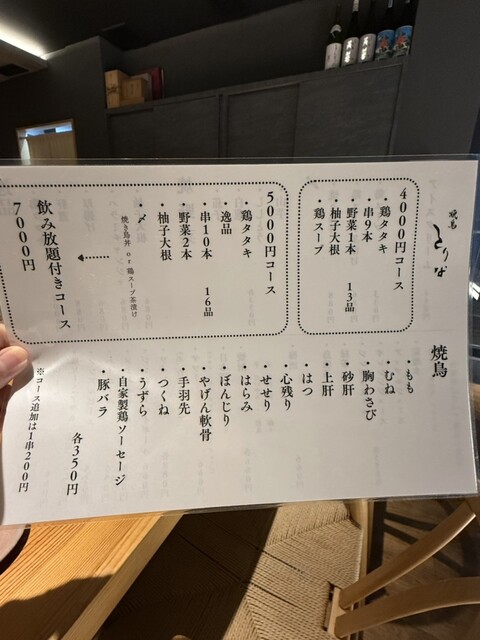 焼鳥 とりば
4000円コース
・鶏タタキ
・串9本
・野菜1本 13品
・柚子大根
・鶏スープ
5000円コース
鶏タタキ
逸品
・串10本 16品
・野菜2本
・柚子大根
・〆
焼き鳥丼 or 鶏スープ茶漬け
飲み放題付きコース
7000円
焼鳥
・もも
・むね
・胸わさび
・砂肝
・上肝
・はつ
・心残り
・せせり
・はらみ
・ぼんじり
・やげん軟骨
・手羽先
・つくね
・うずら
・自家製鶏ソーセージ
・豚バラ
各350円
※コース追加は1串200円